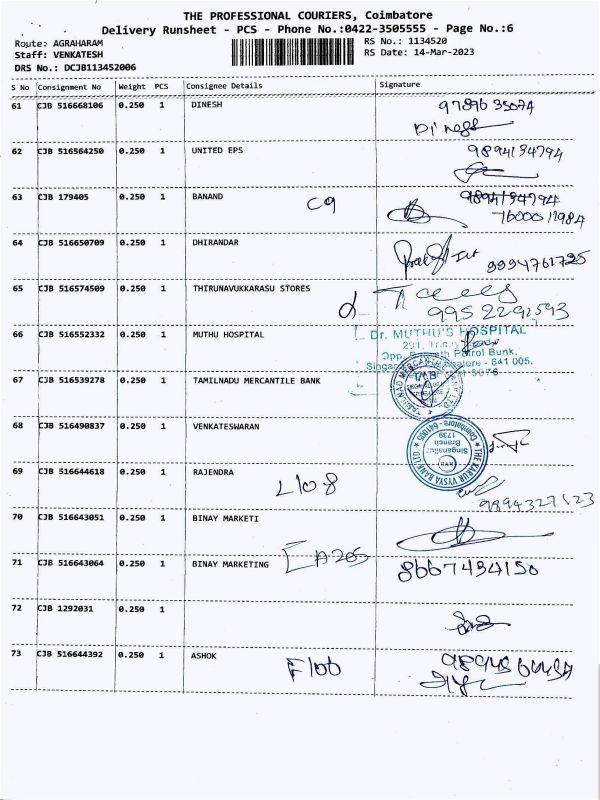 THE PROFESSIONAL COURIERS, Coimbatore
Delivery Runsheet - PCS - Phone No.:0422-3505555 - Page No.:6
Route: AGRAHARAM
Staff: VENKATESH
DRS No.: DCJB113452006
RS No.: 1134520
RS Date: 14-Mar-2023
S No Consignment No Weight PCS Consignee Details Signature
61 CJB 516668106 0.250 1 DINESH
Dinesh
62 CJB 516564250 0.250 1 UNITED EPS 9894134794
63 CJB 179405 0.250 1 BANAND C9 9894134794
64 CJB 516650709 0.250 1 DHIRANDAR
9994761725
65 CJB 516574509 0.250 1 THIRUNAVUKKARASU STORES
9952291593
66 CJB 516552332 0.250 1 MUTHU HOSPITAL Dr. MUTHU'S HOSPITAL
Patrol Bunk,
641 005.
67 CJB 516539278 0.250 1 TAMILNADU MERCANTILE BANK
TAMIL NAD MERCANTILE BANK LTD
68 CJB 516490837 0.250 1 VENKATESWARAN
THE KARUR VYSYA BANK LTD
Singanallur
Branch
1739
Coimbatore - 641005
69 CJB 516644618 0.250 1 RAJENDRA L108
70 CJB 516643051 0.250 1 BINAY MARKETI
71 CJB 516643064 0.250 1 BINAY MARKETING A205 8667434150
72 CJB 1292031 0.250 1
73 CJB 516644392 0.250 1 ASHOK F100